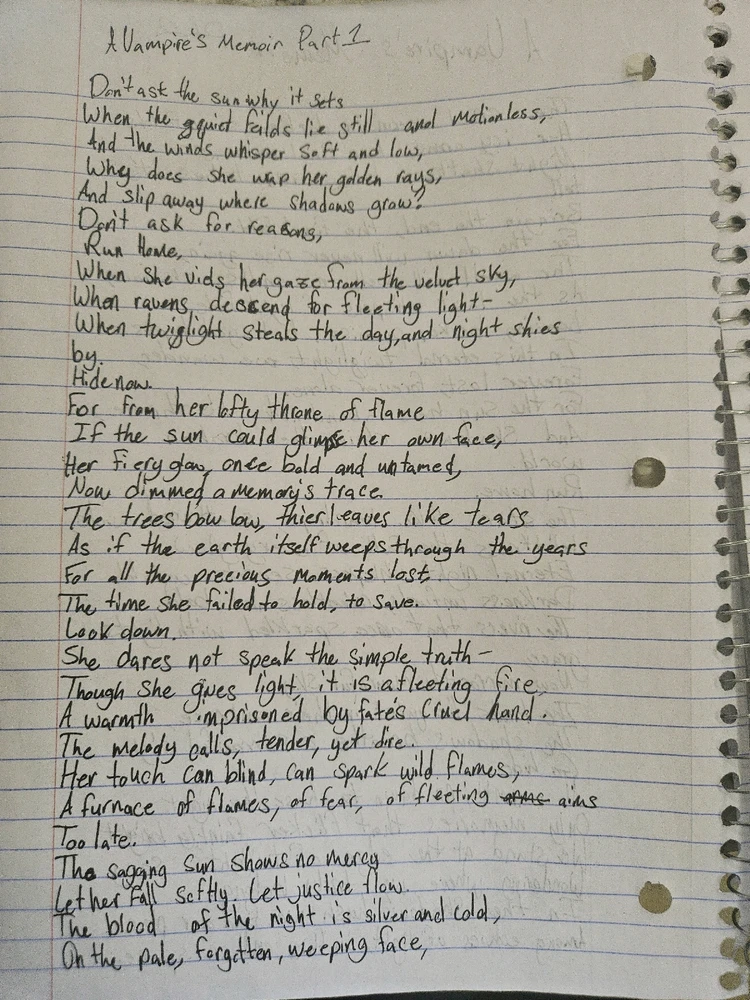 A Vampire's Memoir Part 1
Don't ask the sun why it sets
When the quiet feilds lie still and motionless,
And the winds whisper soft and low,
Why does she wrap her golden rays,
And slip away where shadows grow?
Don't ask for reasons,
Run Home,
When she vids her gaze from the velvet sky,
When ravens descend for fleeting light-
When twiglight steals the day, and night shies
by.
Hide now.
For from her lofty throne of flame
If the sun could glimpse her own face,
Her fiery glow, once bold and untamed,
Now dimmed a memory's trace.
The trees bow low, thier leaves like tears
As if the earth itself weeps through the years
For all the precious moments lost,
The time she failed to hold, to save.
Look down.
She dares not speak the simple truth-
Though she gives light, it is a fleeting fire,
A warmth imprisoned by fate's cruel hand.
The melody calls, tender, yet dire.
Her touch can blind, can spark wild flames,
A furnace of flames, of fear, of fleeting arms aims
Too late.
The sagging sun shows no mercy
Let her fall softly. Let justice flow.
The blood of the night is silver and cold,
On the pale, forgotten, weeping face,